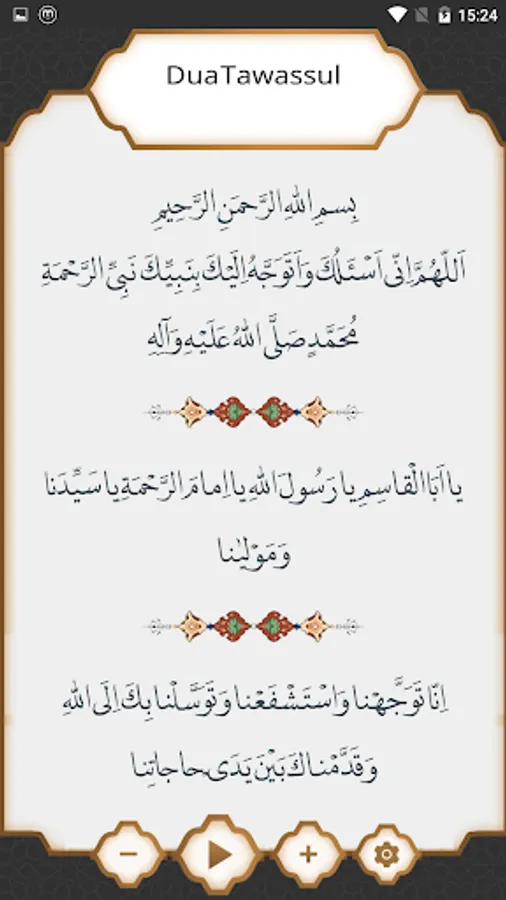 15:24
DuaTawassul
بِسمِ اللهِ الرَّحمَنِ الرَّحِيمِ
اَللّهُمَّ اِنّى اَسْئَلُكَ وَ اَتَوَجَّهُ اِلَيْكَ بِنَبِيِّكَ نَبِىِّ الرَّحْمَةِ
مُحَمَّدٍ صَلَّى اللهُ عَلَيْهِ وَ آلِهِ
يا اَبَا الْقاسِمِ يا رَسُولَ اللهِ يا اِمامَ الرَّحْمَةِ يا سَيِّدَنا
وَ مَوْلينا
اِنّا تَوَجَّهْنا وَ اسْتَشْفَعْنا وَ تَوَسَّلْنا بِكَ اِلَى اللهِ
وَ قَدَّمْناكَ بَيْنَ يَدَى حاجاتِنا